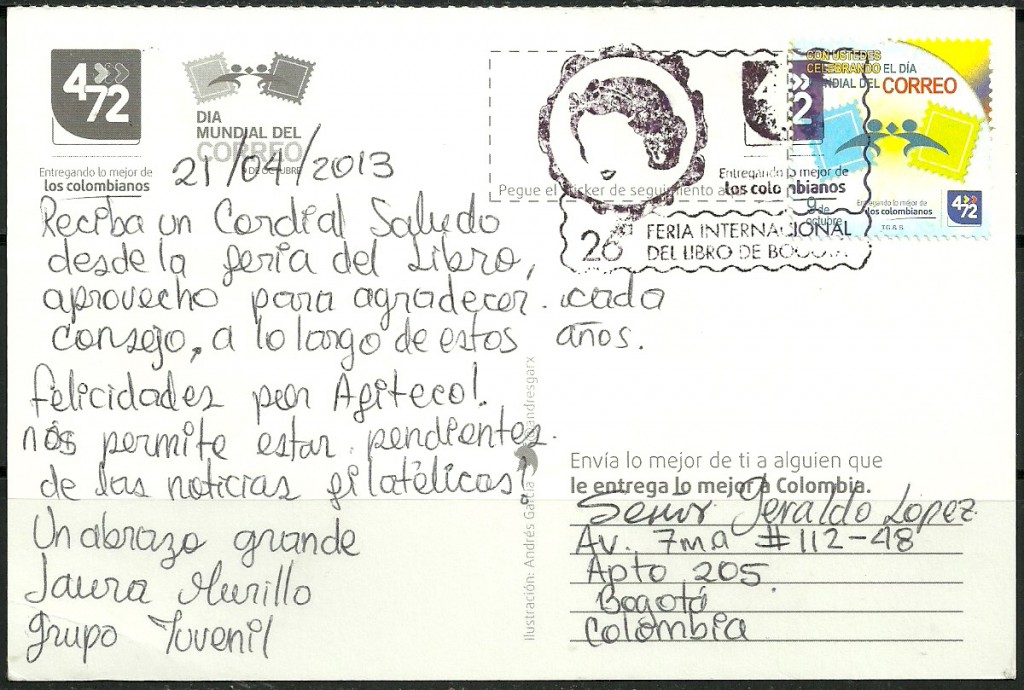 472
DIA
MUNDIAL DEL
CORREO
9 DE OCTUBRE
Entregando lo mejor de
los colombianos
21/04/2013
Reciba un Cordial Saludo
desde la feria del Libro,
aprovecho para agradecer cada
consejo, a lo largo de estos años.
Felicidades por Afiteco!.
nós permite estar pendientes.
de las noticias filatélicas!
Un abrazo grande
Laura Murillo
Grupo Juvenil
Ilustración: Andrés García andresgarx
Pegue el sticker de seguimiento
472
Entregando lo mejor de
los colombianos
26
FERIA INTERNACIONAL
DEL LIBRO DE BOGOTA
CON USTEDES
CELEBRANDO EL DÍA
MUNDIAL DEL CORREO
9 de
octubre
Entregando lo mejor de
los colombianos
472
Envía lo mejor de ti a alguien que
le entrega lo mejor a Colombia.
Señor Jeraldo Lopez
Av. 7ma #112-48
Apto 205
Bogotá
Colombia